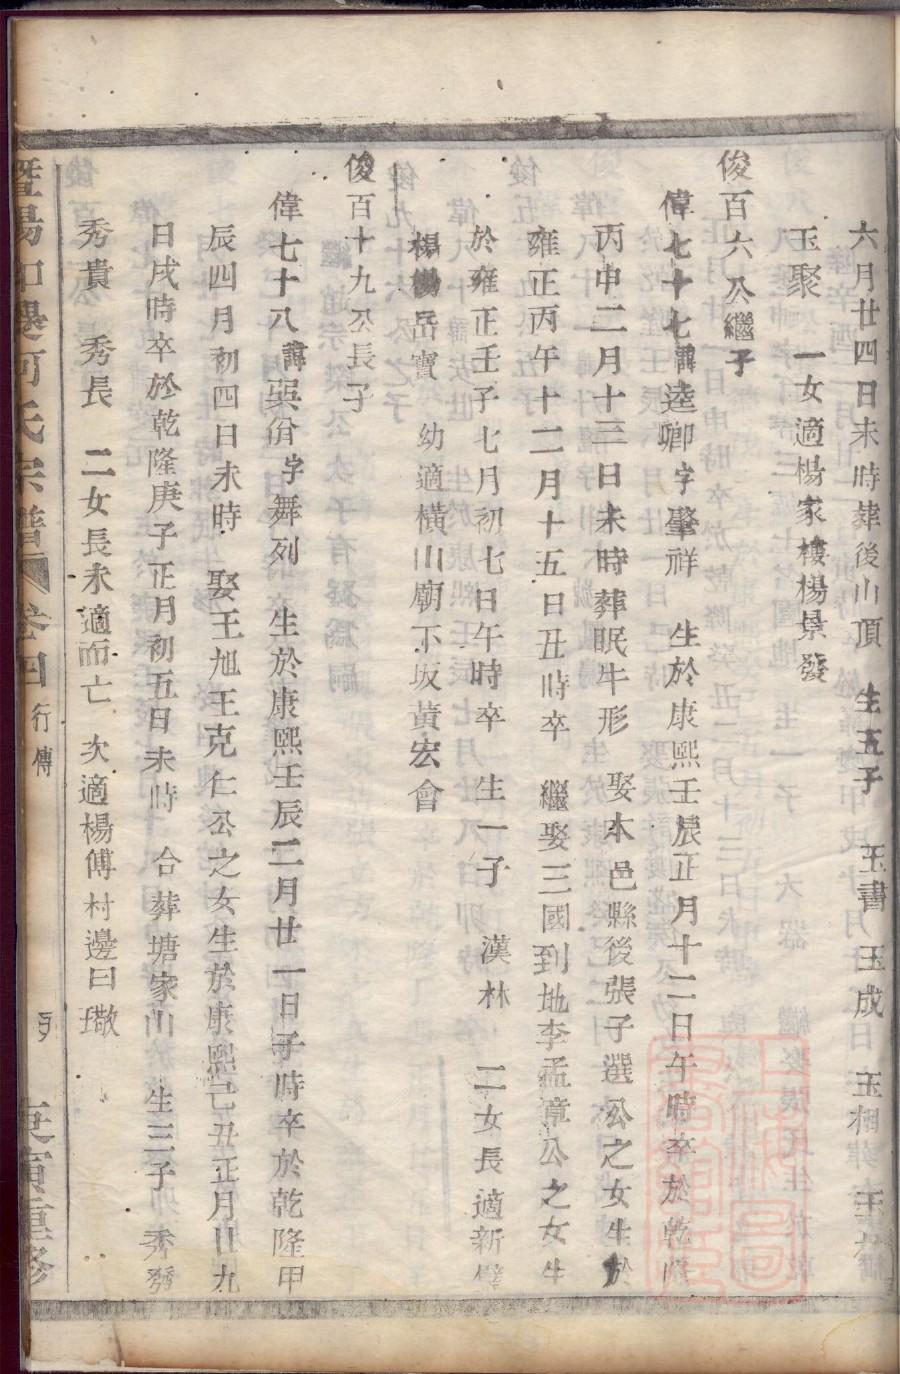 六月廿四日未時葬後山頂　生五子　玉書　玉成　玉相　玉
玉聚　一女適楊家樓楊景發
俊百六公繼子
偉七十七諱逵卿字肇祥　生於康熙壬辰正月十二日午時卒於乾隆
丙申二月十三日未時葬眠牛形　娶本邑縣後張子選公之女生於
雍正丙午十二月十五日丑時卒　繼娶三國到地李孟漳公之女生
於雍正壬子七月初七日午時卒　生一子　漢林　二女長適新壁
楊楊岳寶　幼適橫山廟下坂黃宏會
俊百十九公長子
偉七十八諱奐佾字舞列　生於康熙壬辰二月廿一日子時卒於乾隆甲
辰四月初四日未時　娶王旭王克仁公之女生於康熙己丑正月廿九
日戌時卒於乾隆庚子正月初五日未時　合葬塘家山　生三子　秀發
秀貴　秀長　二女長未適而亡　次適楊傅村邊日璥
暨陽　何氏宗譜　卷四　行傳　庚寅重修